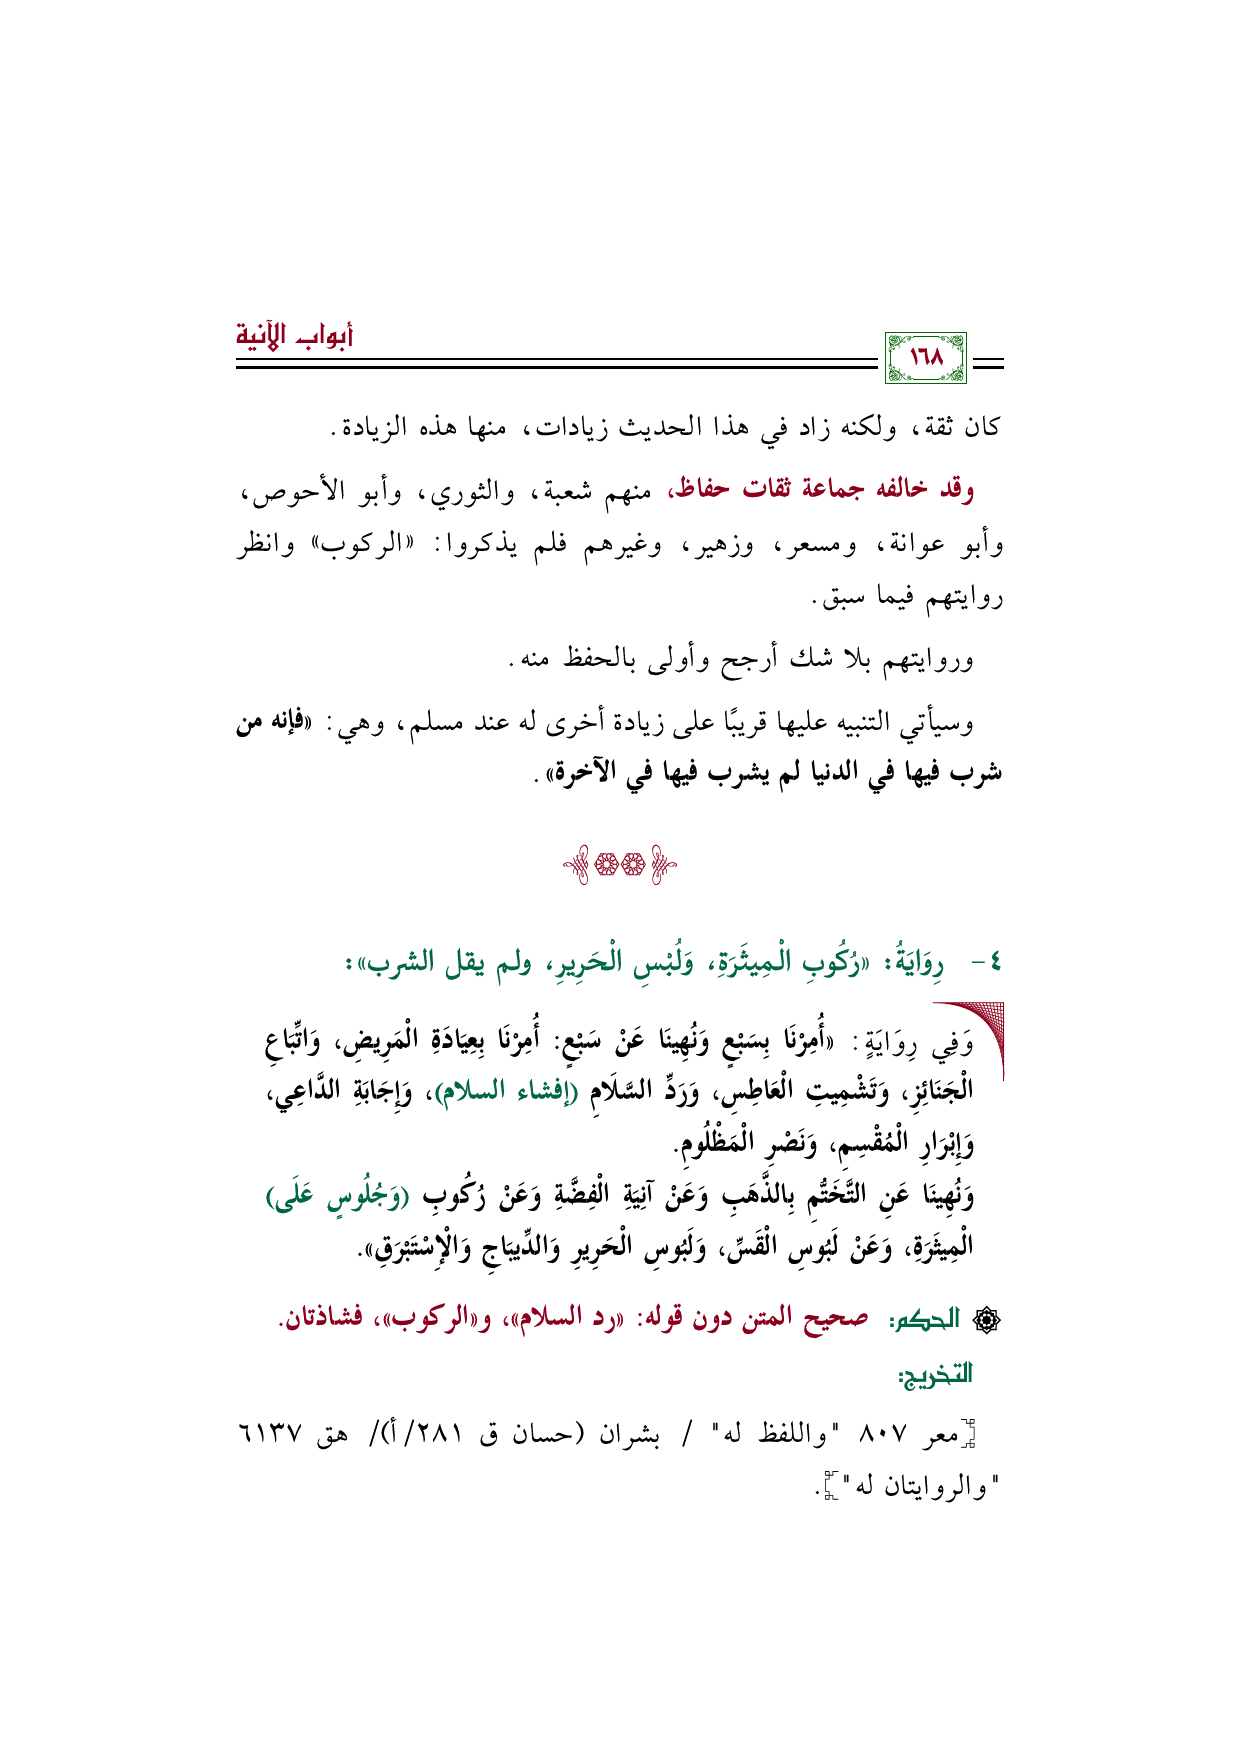 أبواب الآنية
١٦٨
كان ثقة، ولكنه زاد في هذا الحديث زيادات، منها هذه الزيادة.
وقد خالفه جماعة ثقات حفاظ، منهم شعبة، والثوري، وأبو الأحوص،
وأبو عوانة، ومسعر، وزهير، وغيرهم فلم يذكروا: «الركوب» وانظر
روايتهم فيما سبق.
وروايتهم بلا شك أرجح وأولى بالحفظ منه.
وسيأتي التنبيه عليها قريبًا على زيادة أخرى له عند مسلم، وهي: «فإنه من
شرب فيها في الدنيا لم يشرب فيها في الآخرة».
٤- رِوَايَةُ: «رُكُوبِ الْمِيثَرَةِ، وَلُبْسِ الْحَرِيرِ، ولم يقل الشرب»:
وَفِي رِوَايَةٍ: «أُمِرْنَا بِسَبْعٍ وَنُهِينَا عَنْ سَبْعٍ: أُمِرْنَا بِعِيَادَةِ الْمَرِيضِ، وَاتِّبَاعِ
الْجَنَائِزِ، وَتَشْمِيتِ الْعَاطِسِ، وَرَدِّ السَّلَامِ (إفشاء السلام)، وَإِجَابَةِ الدَّاعِي،
وَإِبْرَارِ الْمُقْسِمِ، وَنَصْرِ الْمَظْلُومِ.
وَنُهِينَا عَنِ التَّخَتُّمِ بِالذَّهَبِ وَعَنْ آنِيَةِ الْفِضَّةِ وَعَنْ رُكُوبِ (وَجُلُوسٍ عَلَى)
الْمِيثَرَةِ، وَعَنْ لَبُوسِ الْقَسِّ، وَلَبُوسِ الْحَرِيرِ وَالدِّيبَاجِ وَالْإِسْتَبْرَقِ».
الحكم: صحيح المتن دون قوله: «رد السلام»، و«الركوب»، فشاذتان.
التخريج:
[معر ٨٠٧ "واللفظ له" / بشران (حسان ق ٢٨١/ أ)/ هق ٦١٣٧
"والروايتان له"].